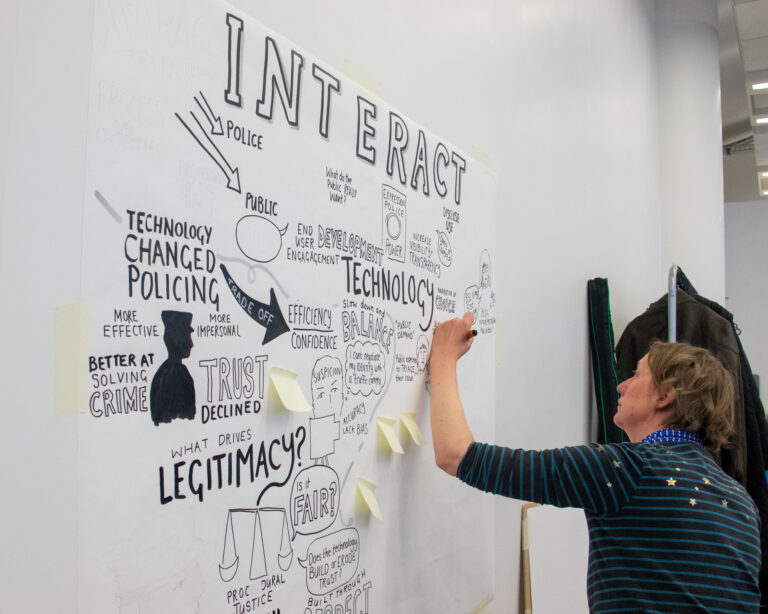 INTERACT
POLICE
PUBLIC
What do the
PUBLIC REALLY
Want?
EXPRESSION
POLICE
POWER
DISCUSS
USE
INCREASE
VISIBILITY
TRANSPARENCY
TECHNOLOGY
CHANGED
POLICING
END
USER
ENGAGEMENT
DEVELOPMENT
TECHNOLOGY
TRADE OFF
MORE
EFFECTIVE
MORE
IMPERSONAL
EFFICIENCY
CONFIDENCE
Slow down and
BALANCE
"PUBLIC
DEMAND"
NARRATIVE OF
CHOICE
Public expected
to TRIAGE
their issue
BETTER AT
SOLVING
CRIME
TRUST
DECLINED
I can't negotiate
my identity with
a traffic camera
SUSPICION
ACCURACY
LACK BIAS
WHAT DRIVES
LEGITIMACY?
Is it
FAIR?
Does the technology
BUILD OR ERODE
TRUST?
PROCEDURAL
JUSTICE
BUILT THROUGH
RESPECT